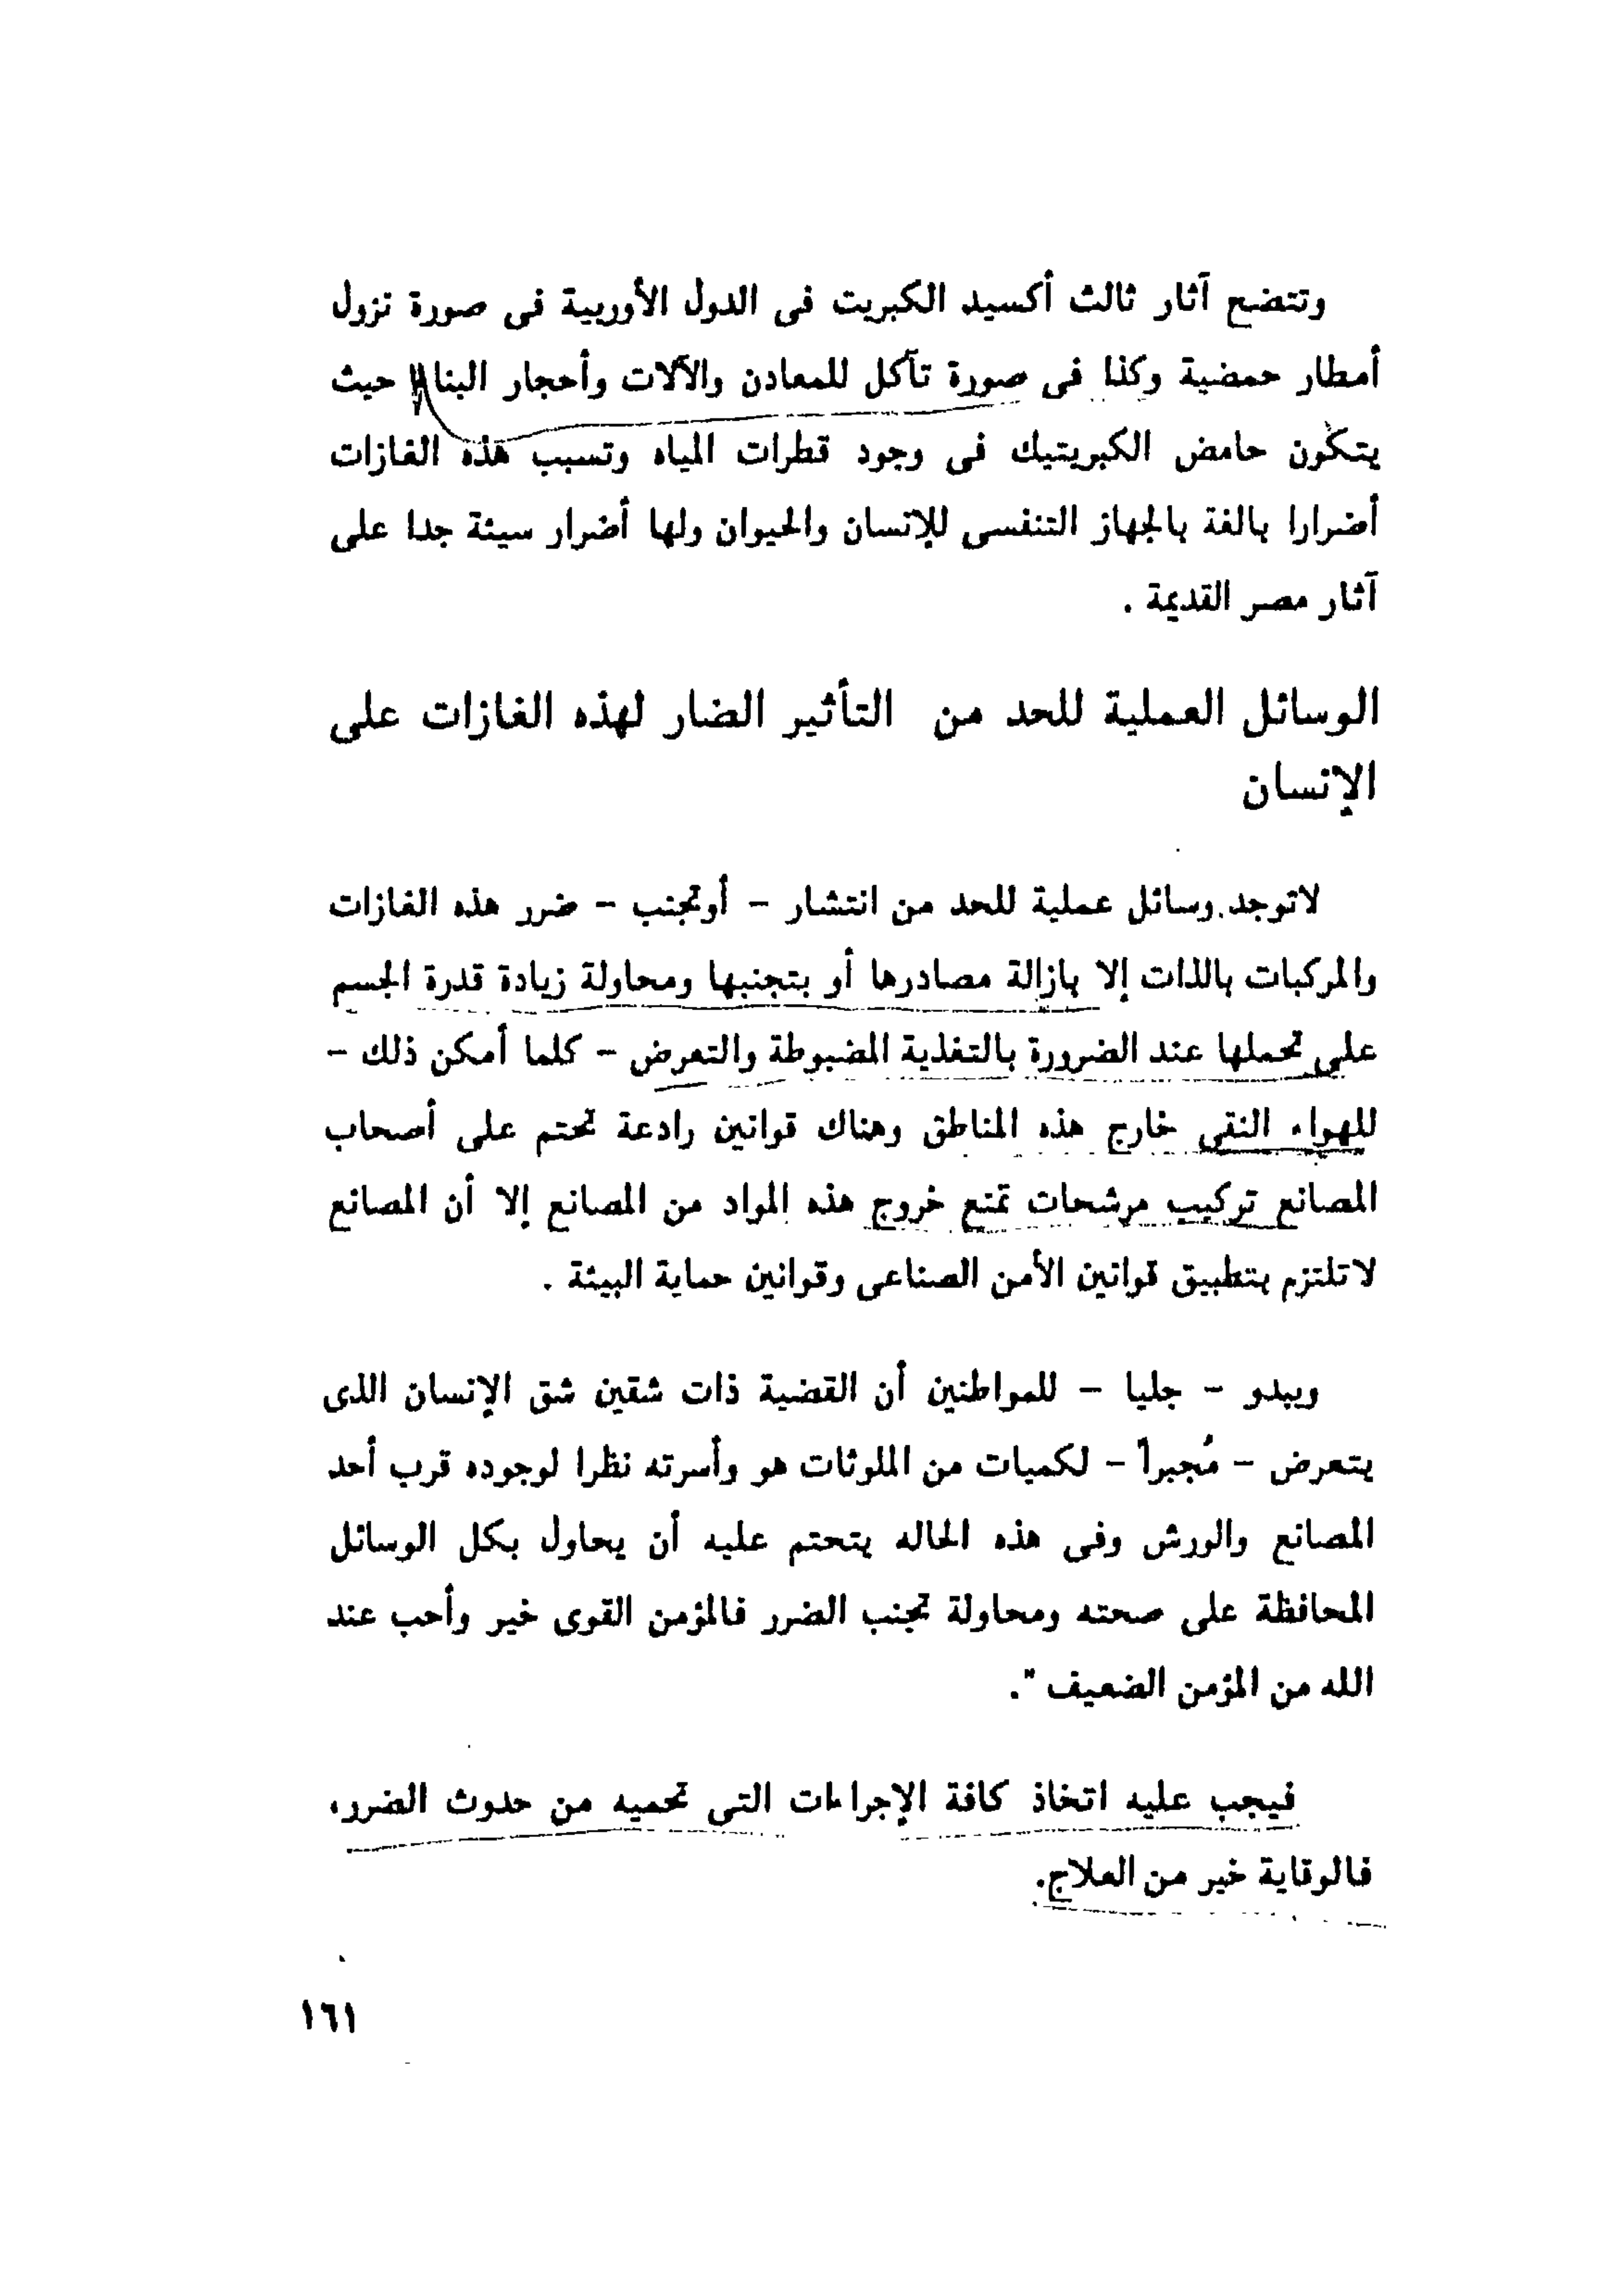 وتتضح آثار ثالث أكسيد الكبريت فى الدول الأوربية فى صورة نزول
أمطار حمضية وكذا فى صورة تآكل للمعادن والآلات وأحجار البناء حيث
يتكون حامض الكبريتيك فى وجود قطرات المياه وتسبب هذه الغازات
أضرارا بالغة بالجهاز التنفسى للإنسان والحيوان ولها أضرار سيئة جدا على
آثار مصر القديمة .
الوسائل العملية للحد من التأثير الضار لهذه الغازات على
الإنسان
لاتوجد وسائل عملية للحد من انتشار - أوتجنب - ضرر هذه الغازات
والمركبات بالذات إلا بازالة مصادرها أو بتجنبها ومحاولة زيادة قدرة الجسم
على تحملها عند الضرورة بالتغذية المضبوطة والتعرض - كلما أمكن ذلك -
للهواء النقى خارج هذه المناطق وهناك قوانين رادعة تحتم على أصحاب
المصانع تركيب مرشحات تمنع خروج هذه المواد من المصانع إلا أن المصانع
لاتلتزم بتطبيق قوانين الأمن الصناعى وقوانين حماية البيئة .
ويبدو - جليا - للمواطنين أن القضية ذات شقين شق الإنسان الذى
يتعرض - مُجبراً - لكميات من الملوثات هو وأسرته نظرا لوجوده قرب أحد
المصانع والورش وفى هذه الحاله يتحتم عليه أن يحاول بكل الوسائل
المحافظة على صحته ومحاولة تجنب الضرر فالمؤمن القوى خير وأحب عند
الله من المؤمن الضعيف ".
فيجب عليه اتخاذ كافة الإجراءات التى تحميه من حدوث الضرر،
فالوقاية خير من العلاج.
١٦١